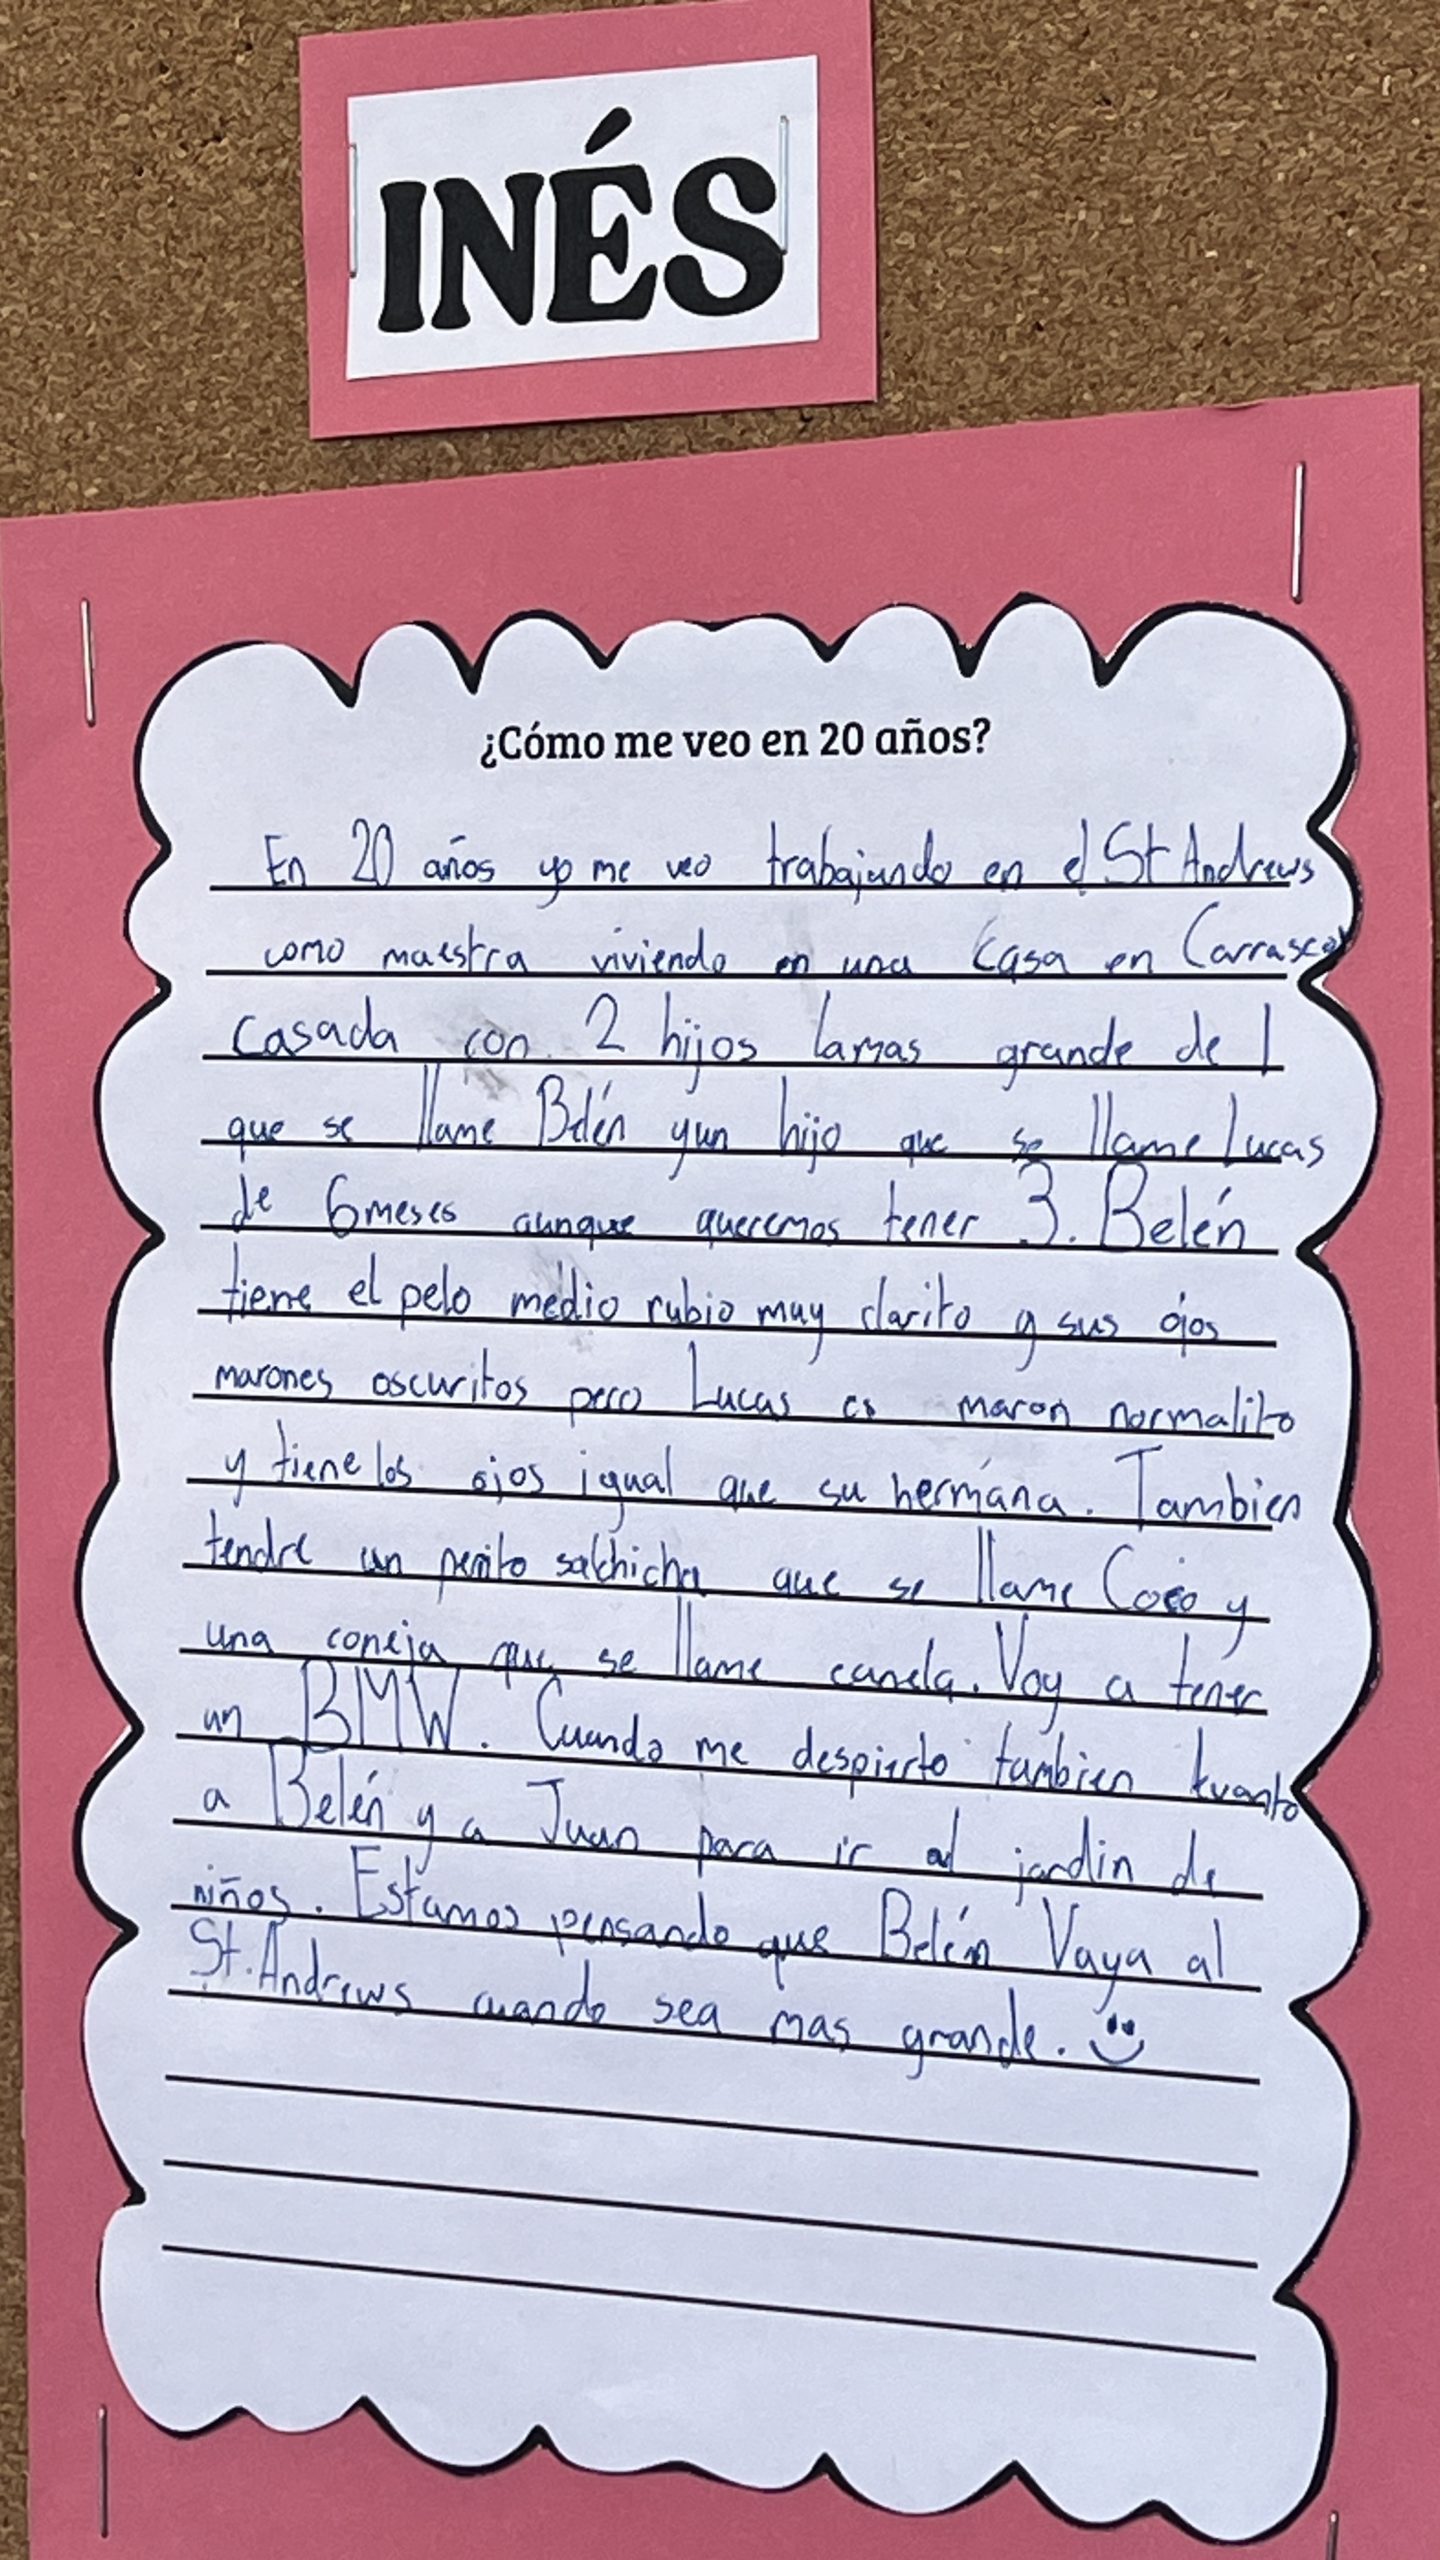 INÉS
¿Cómo me veo en 20 años?
En 20 años yo me veo trabajando en el St Andrews
como maestra viviendo en una casa en Carrasco
casada con 2 hijos la mas grande de 1
que se llame Belén y un hijo que se llame Lucas
de 6 meses aunque queremos tener 3. Belén
tiene el pelo medio rubio muy clarito y sus ojos
marones oscuritos pero Lucas es maron normalito
y tiene los ojos igual que su hermana. Tambien
tendre un perrito salchicha que se llame Coco y
una coneja que se llame canela. Voy a tener
un BMW. Cuando me despierto tambien levanto
a Belén y a Juan para ir al jardin de
niños. Estamos pensando que Belén Vaya al
St. Andrews cuando sea mas grande.